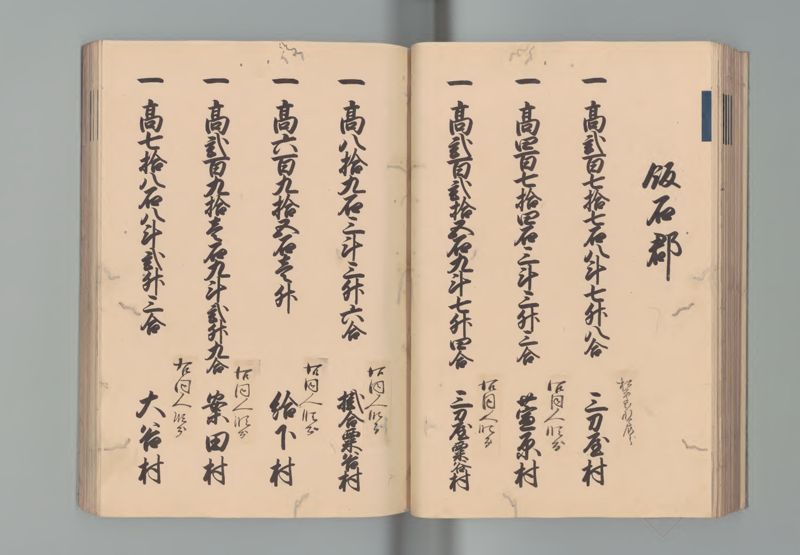 飯石郡
一 高弐百七拾七石八斗七升八合
三刀屋村
一 高四百七拾四石三斗三升三合
萱原村
右同人領分
一 高弐百弐拾五石九斗七升四合
三刀屋粟谷村
右同人領分
一 高八拾九石三斗三升六合
掛合粟谷村
右同人領分
一 高六百九拾五石壱升
給下村
右同人領分
一 高弐百九拾壱石九斗弐升九合
案田村
右同人領分
一 高七拾八石八斗弐升三合
大谷村
右同人領分